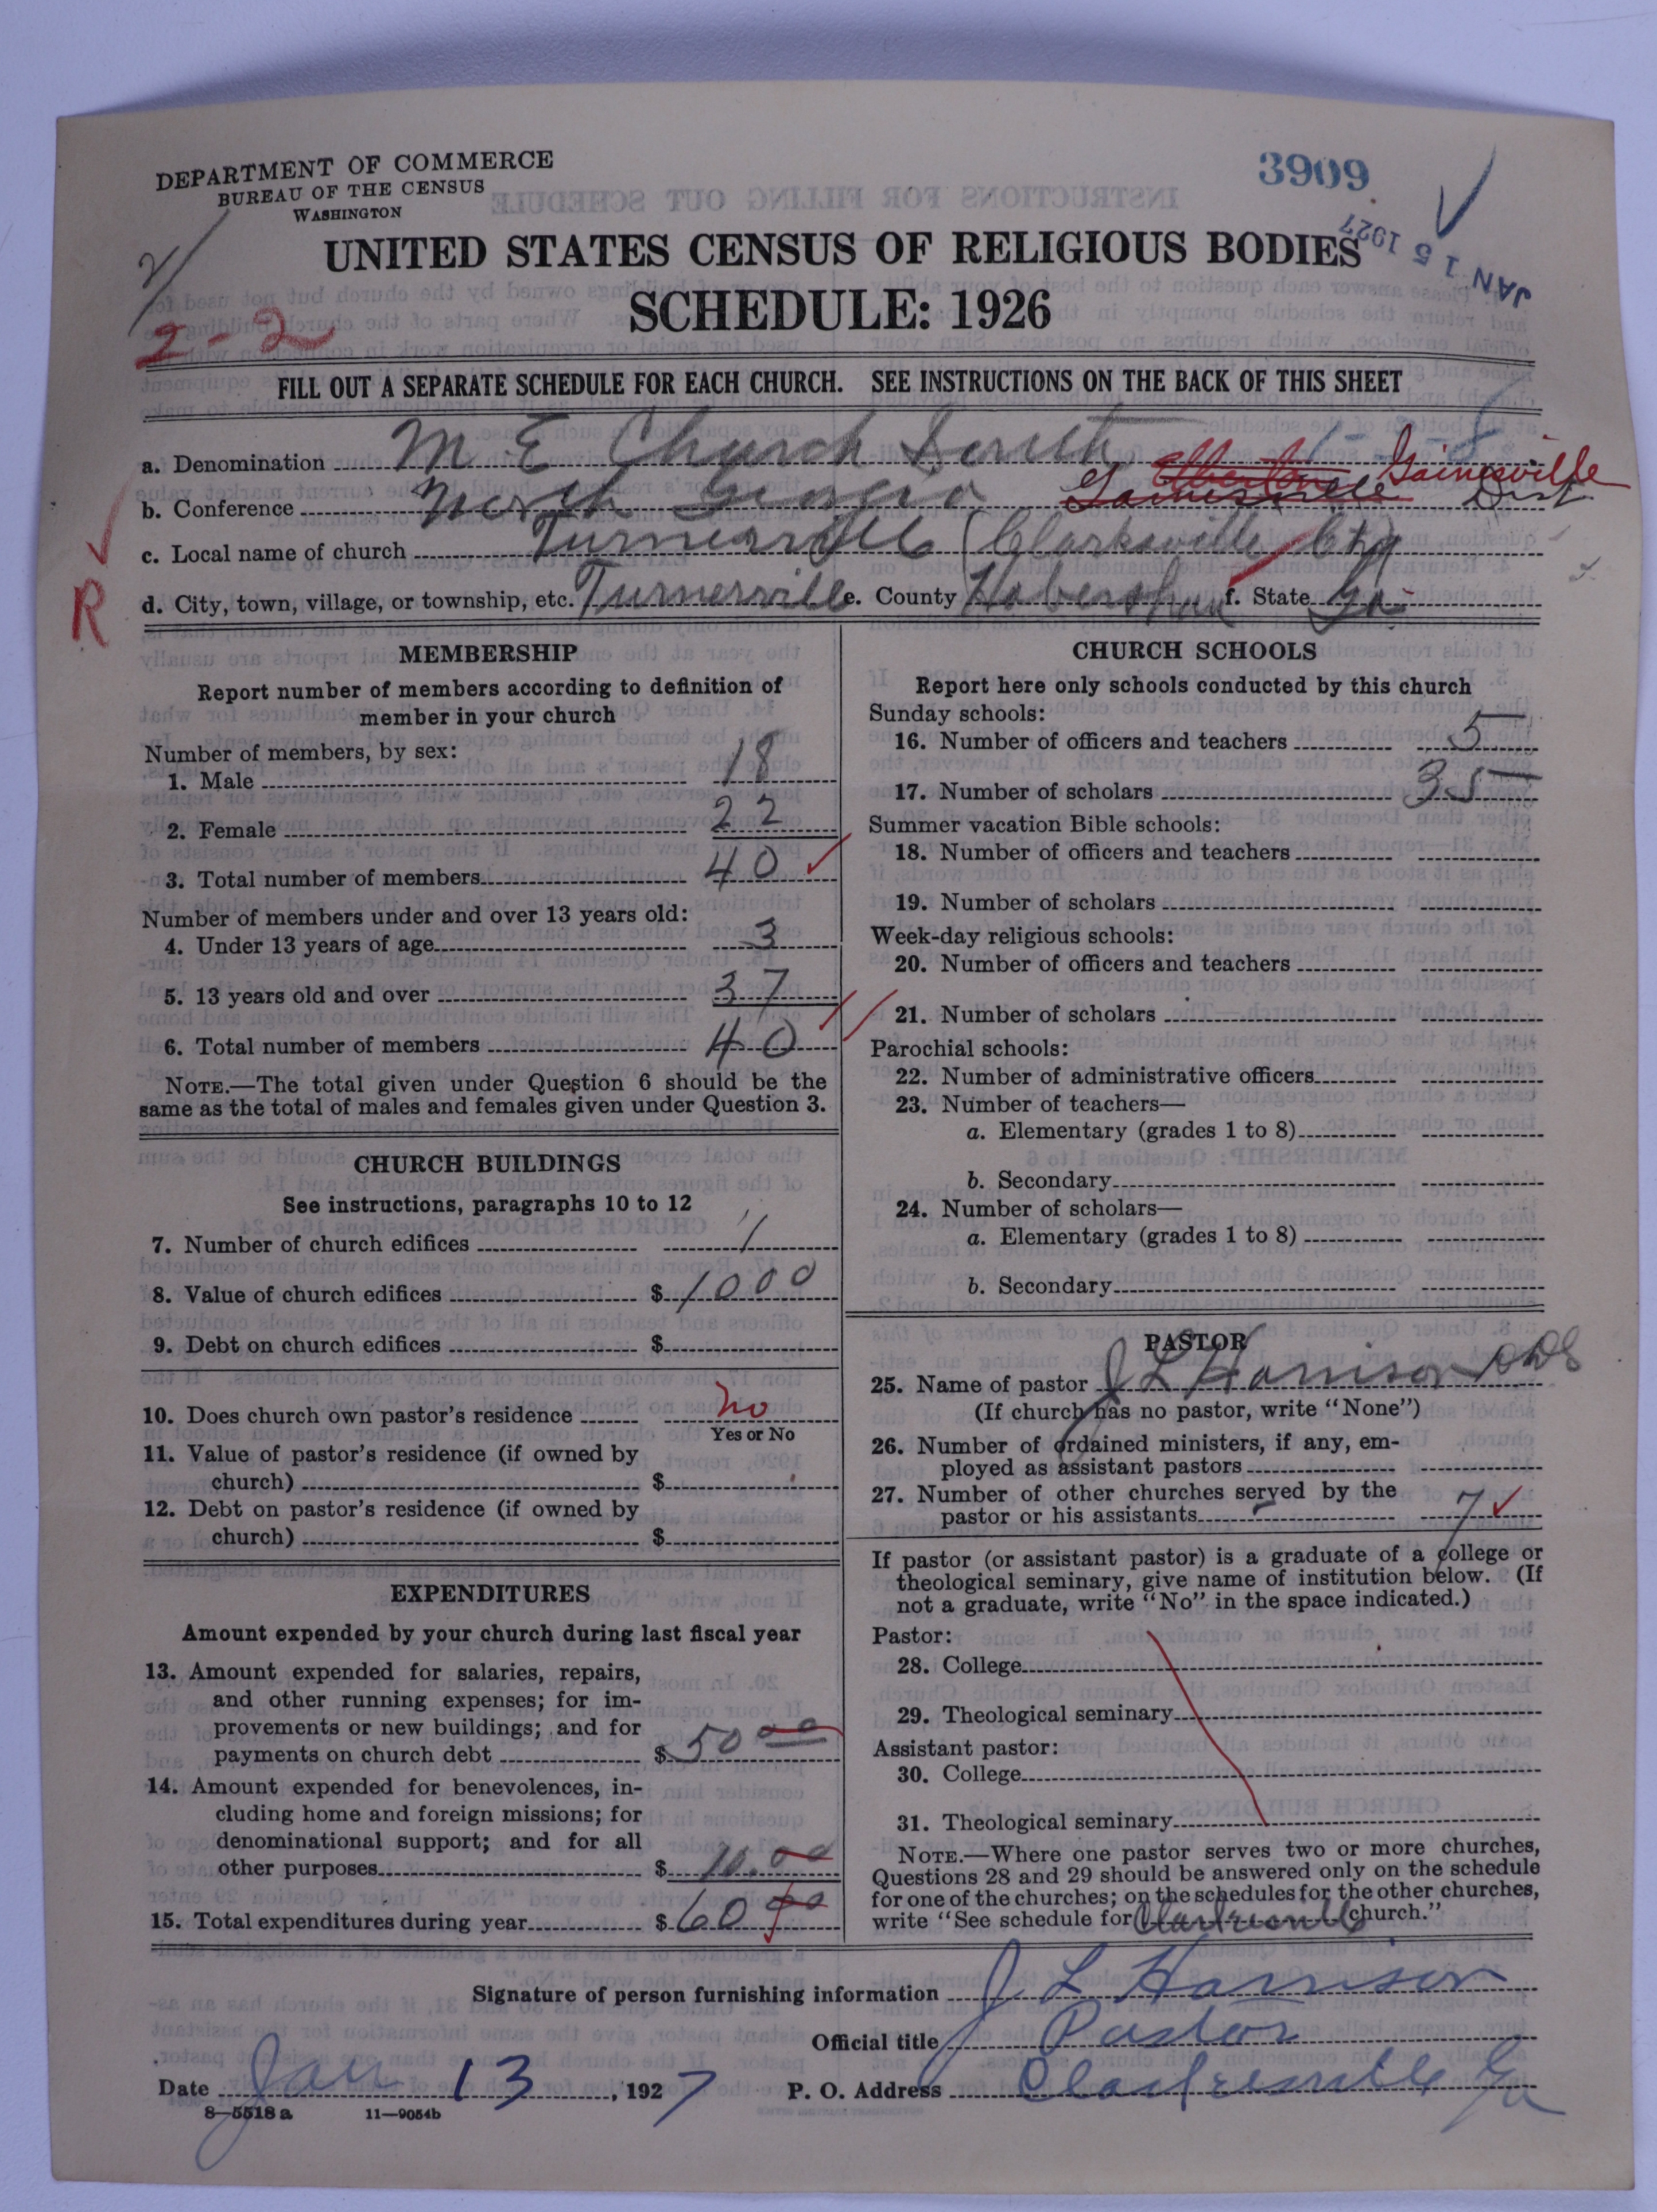 DEPARTMENT OF COMMERCE
BUREAU OF THE CENSUS
WASHINGTON
3909
JAN 15 1927
UNITED STATES CENSUS OF RELIGIOUS BODIES
SCHEDULE: 1926
2-2
FILL OUT A SEPARATE SCHEDULE FOR EACH CHURCH. SEE INSTRUCTIONS ON THE BACK OF THIS SHEET
a. Denomination M E Church South
b. Conference North Georgia Elberton Gainesville Gainesville Dist
c. Local name of church Turnerville (Clarksville
R
d. City, town, village, or township, etc. Turnerville e. County Habersham f. State Ga
MEMBERSHIP
Report number of members according to definition of
member in your church
Number of members, by sex:
1. Male 18
2. Female 22
3. Total number of members 40
Number of members under and over 13 years old:
4. Under 13 years of age 3
5. 13 years old and over 37
6. Total number of members 40
NOTE.—The total given under Question 6 should be the
same as the total of males and females given under Question 3.
CHURCH BUILDINGS
See instructions, paragraphs 10 to 12
7. Number of church edifices 1
8. Value of church edifices $ 1000
9. Debt on church edifices $
10. Does church own pastor's residence no
Yes or No
11. Value of pastor's residence (if owned by
church) $
12. Debt on pastor's residence (if owned by
church) $
EXPENDITURES
Amount expended by your church during last fiscal year
13. Amount expended for salaries, repairs,
and other running expenses; for im-
provements or new buildings; and for
payments on church debt $ 50 00
14. Amount expended for benevolences, in-
cluding home and foreign missions; for
denominational support; and for all
other purposes $ 10.00
15. Total expenditures during year $ 60 00
CHURCH SCHOOLS
Report here only schools conducted by this church
Sunday schools:
16. Number of officers and teachers 5
17. Number of scholars 35
Summer vacation Bible schools:
18. Number of officers and teachers
19. Number of scholars
Week-day religious schools:
20. Number of officers and teachers
21. Number of scholars
Parochial schools:
22. Number of administrative officers
23. Number of teachers—
a. Elementary (grades 1 to 8)
b. Secondary
24. Number of scholars—
a. Elementary (grades 1 to 8)
b. Secondary
PASTOR
25. Name of pastor J L Harrison
(If church has no pastor, write "None")
26. Number of ordained ministers, if any, em-
ployed as assistant pastors
27. Number of other churches served by the
pastor or his assistants 7
If pastor (or assistant pastor) is a graduate of a college or
theological seminary, give name of institution below. (If
not a graduate, write "No" in the space indicated.)
Pastor:
28. College
29. Theological seminary
Assistant pastor:
30. College
31. Theological seminary
NOTE.—Where one pastor serves two or more churches,
Questions 28 and 29 should be answered only on the schedule
for one of the churches; on the schedules for the other churches,
write "See schedule for Clarksville church."
Signature of person furnishing information J L Harrison
Official title Pastor
Date Jan 13, 1927 P. O. Address Clarkesville Ga
8—5518 a 11—9054b